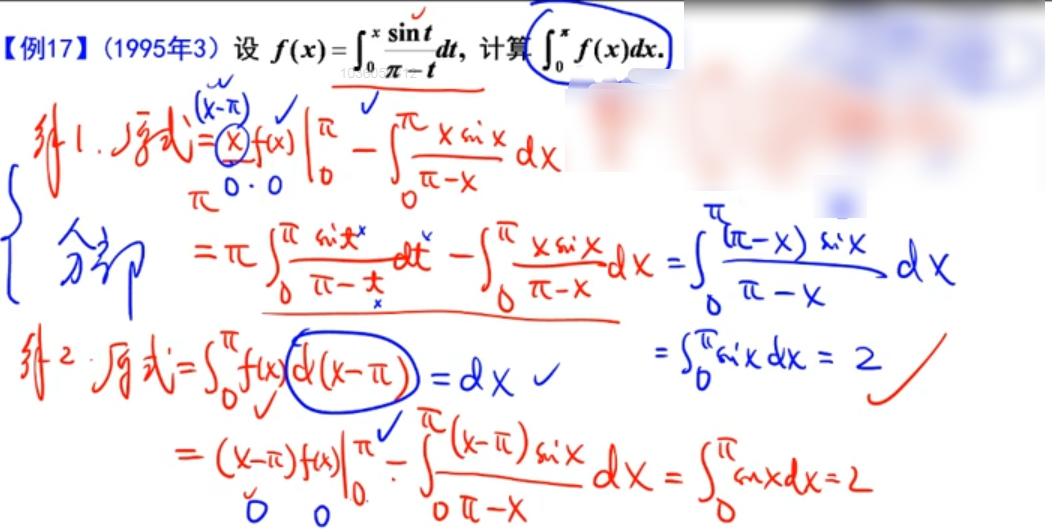 【例17】(1995年3) 设 f(x)=∫₀ˣ sin t/(π−t) dt, 计算 ∫₀^π f(x)dx.
(x-π)
解1. 原式 = x f(x)|₀^π − ∫₀^π x sin x/(π−x) dx
π 0·0
分部
= π∫₀^π sin t/(π−t) dt − ∫₀^π x sin x/(π−x) dx = ∫₀^π (π−x) sin x/(π−x) dx
x x x
= ∫₀^π sin x dx = 2
解2. 原式 = ∫₀^π f(x) d(x−π) = dx ✓
= (x−π) f(x)|₀^π − ∫₀^π (x−π) sin x/(π−x) dx = ∫₀^π sin x dx = 2
0 0